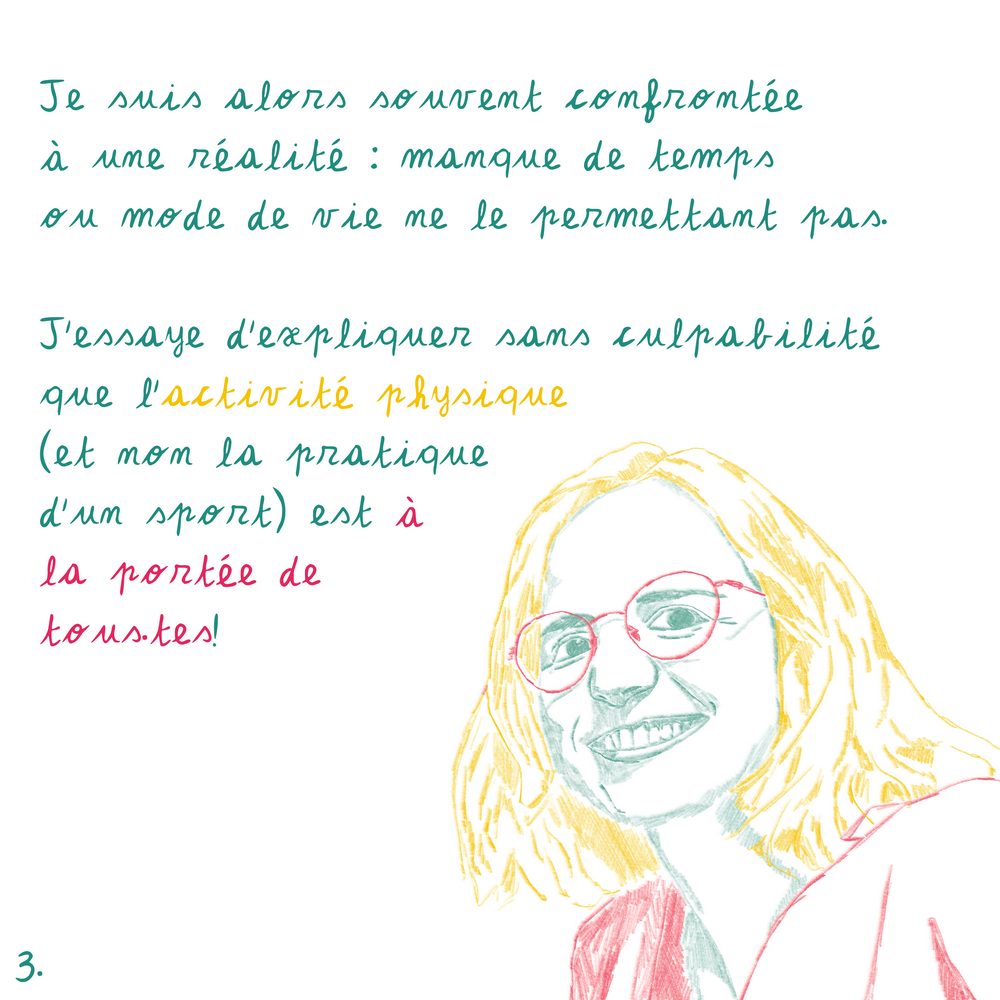 Je suis alors souvent confrontée
à une réalité : manque de temps
ou mode de vie ne le permettant pas.
J'essaye d'expliquer sans culpabilité
que l'activité physique
(et non la pratique
d'un sport) est à
la portée de
tous.tes!
3.